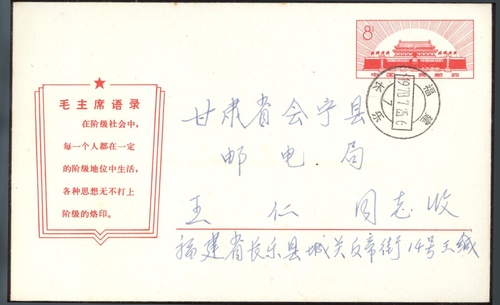 8分
中国人民邮政
福建
1970.7.15.6
长乐
毛主席语录
在阶级社会中，
每一个人都在一定
的阶级地位中生活，
各种思想无不打上
阶级的烙印。
甘肃省会宁县
邮电局
王仁同志收
福建省长乐县城关文帝街14号王缄